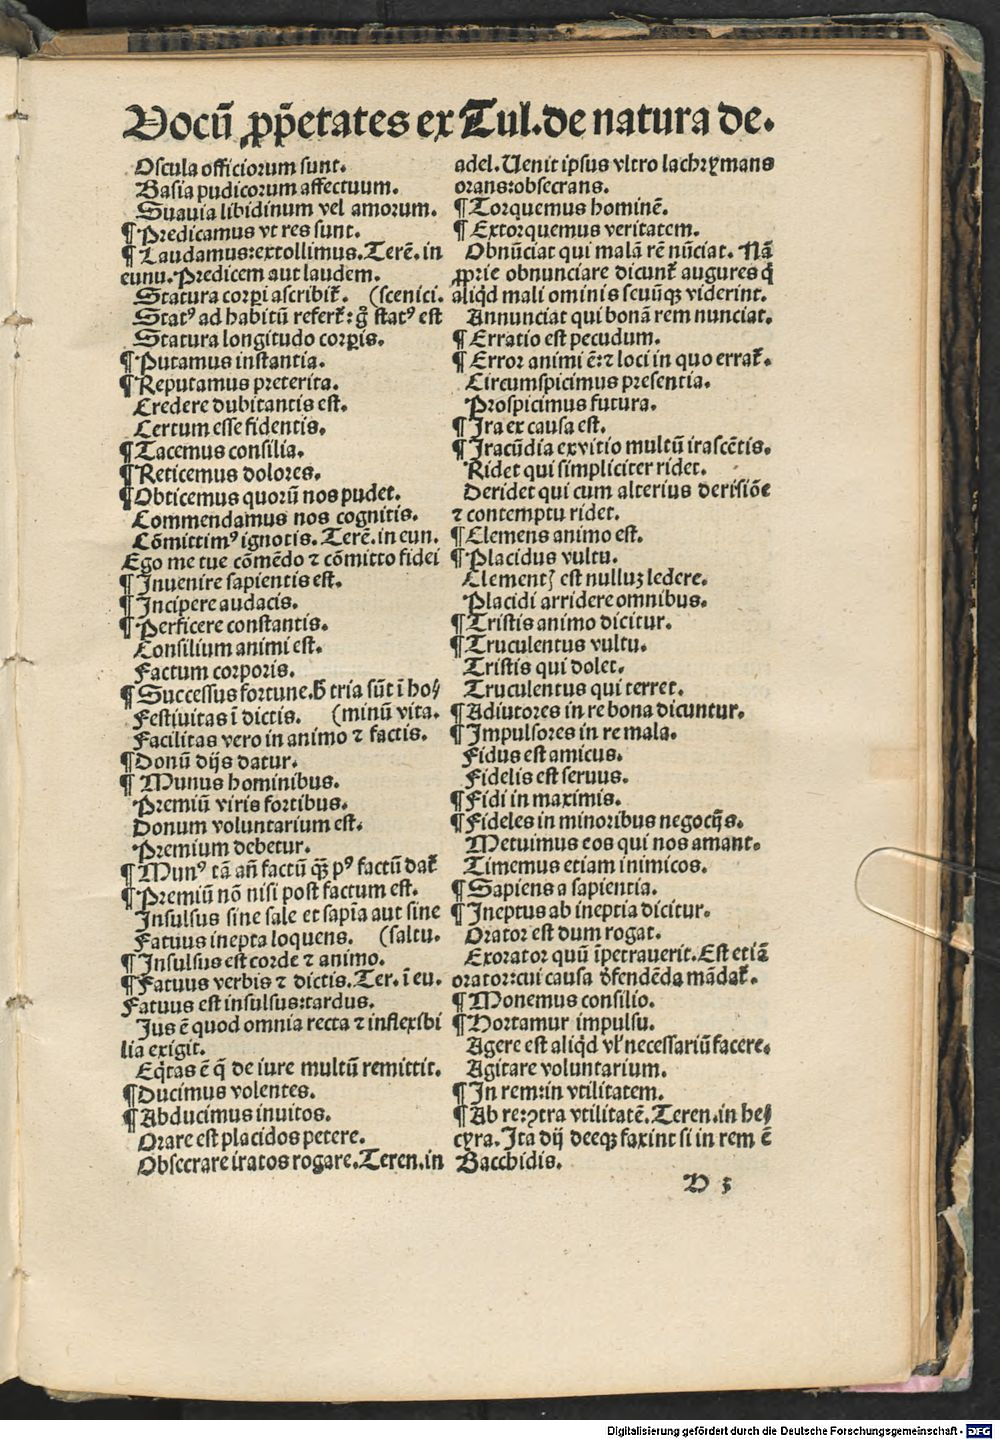 Vocū ꝓp̄etates ex Tul. de natura de.
Oscula officiorum sunt.
Basia pudicorum affectuum.
Suauia libidinum vel amorum.
¶ Predicamus vt res sunt.
¶ Laudamus: extollimus. Terē. in
eunu. Predicem aut laudem.
Statura corꝑi ascribit᷑. (scenici.
Statꝰ ad habitū refert᷑: gͦ statꝰ est
Statura longitudo corꝑis.
¶ Putamus instantia.
¶ Reputamus preterita.
Credere dubitantis est.
Certum esse fidentis.
¶ Tacemus consilia.
¶ Reticemus dolores.
¶ Obticemus quorū nos pudet.
Commendamus nos cognitis.
Cōmittimꝰ ignotis. Terē. in eun.
Ego me tue cōmēdo ⁊ cōmitto fidei
¶ Inuenire sapientis est.
¶ Incipere audacis.
¶ Perficere constantis.
Consilium animi est.
Factum corporis.
¶ Successus fortune. h̄ tria sūt ī ho⸗
Festiuitas ī dictis. (minū vita.
Facilitas vero in animo ⁊ factis.
¶ Donū dijs datur.
¶ Munus hominibus.
Premiū viris fortibus.
Donum voluntarium est.
Premium debetur.
¶ Munꝰ tā an̄ factū ꝙ̄ pꝰ factū dat᷑
¶ Premiū nō nisi post factum est.
Insulsus sine sale et sapīa aut sine
Fatuus inepta loquens. (saltu.
¶ Insulsus est corde ⁊ animo.
¶ Fatuus verbis ⁊ dictis. Ter. ī eu.
Fatuus est insulsus: tardus.
Jus ē quod omnia recta ⁊ inflexibi
lia exigit.
Eq̇tas ē q̄ de iure multū remittit.
¶ Ducimus volentes.
¶ Abducimus inuitos.
Orare est placidos petere.
Obsecrare iratos rogare. Teren. in
adel. Uenit ipsus vltro lachrymans
orans: obsecrans.
¶ Torquemus hominē.
¶ Extorquemus veritatem.
Obnūciat qui malā rē nūciat. Nā
ꝓprie obnunciare dicunt᷑ augures q̇
aliq̇d mali ominis scuūqꝫ viderint.
Annunciat qui bonā rem nunciat.
¶ Erratio est pecudum.
¶ Error animi ē: ⁊ loci in quo errat᷑.
Circumspicimus presentia.
Prospicimus futura.
¶ Ira ex causa est.
¶ Iracūdia ex vitio multū irascētis.
Ridet qui simpliciter ridet.
Deridet qui cum alterius derisiōe
⁊ contemptu ridet.
¶ Clemens animo est.
¶ Placidus vultu.
Clementꝭ est nulluꝫ ledere.
Placidi arridere omnibus.
¶ Tristis animo dicitur.
¶ Truculentus vultu.
Tristis qui dolet.
Truculentus qui terret.
¶ Adiutores in re bona dicuntur.
¶ Impulsores in re mala.
Fidus est amicus.
Fidelis est seruus.
¶ Fidi in maximis.
¶ Fideles in minoribus negocijs.
Metuimus eos qui nos amant.
Timemus etiam inimicos.
¶ Sapiens a sapientia.
¶ Ineptus ab ineptia dicitur.
Orator est dum rogat.
Exorator quū īpetrauerit. Est etiā
orator: cui causa d̄fendēda mādat᷑.
¶ Monemus consilio.
¶ Hortamur impulsu.
Agere est aliq̇d vl̓ necessariū facere.
Agitare voluntarium.
¶ In rem: in vtilitatem.
¶ Ab re: ꝯtra vtilitatē. Teren. in he⸗
cyra. Ita dij deeqꝫ faxint si in rem ē
Bacchidis.
D 3
Digitalisierung gefördert durch die Deutsche Forschungsgemeinschaft - DFG